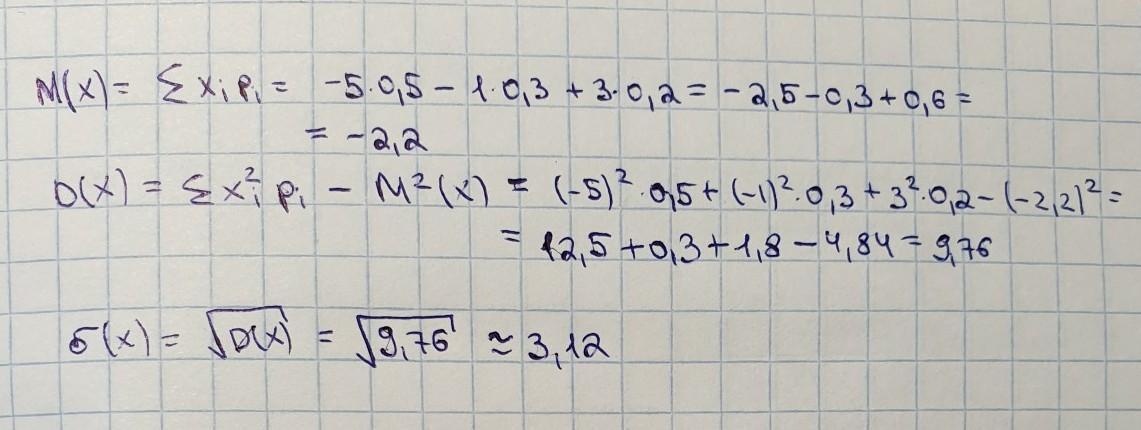 M(x) = Σ xᵢ pᵢ = -5·0,5 - 1·0,3 + 3·0,2 = -2,5 - 0,3 + 0,6 =
= -2,2
D(x) = Σ xᵢ² pᵢ - M²(x) = (-5)²·0,5 + (-1)²·0,3 + 3²·0,2 - (-2,2)² =
= 12,5 + 0,3 + 1,8 - 4,84 = 9,76
σ(x) = √D(x) = √9,76 ≈ 3,12